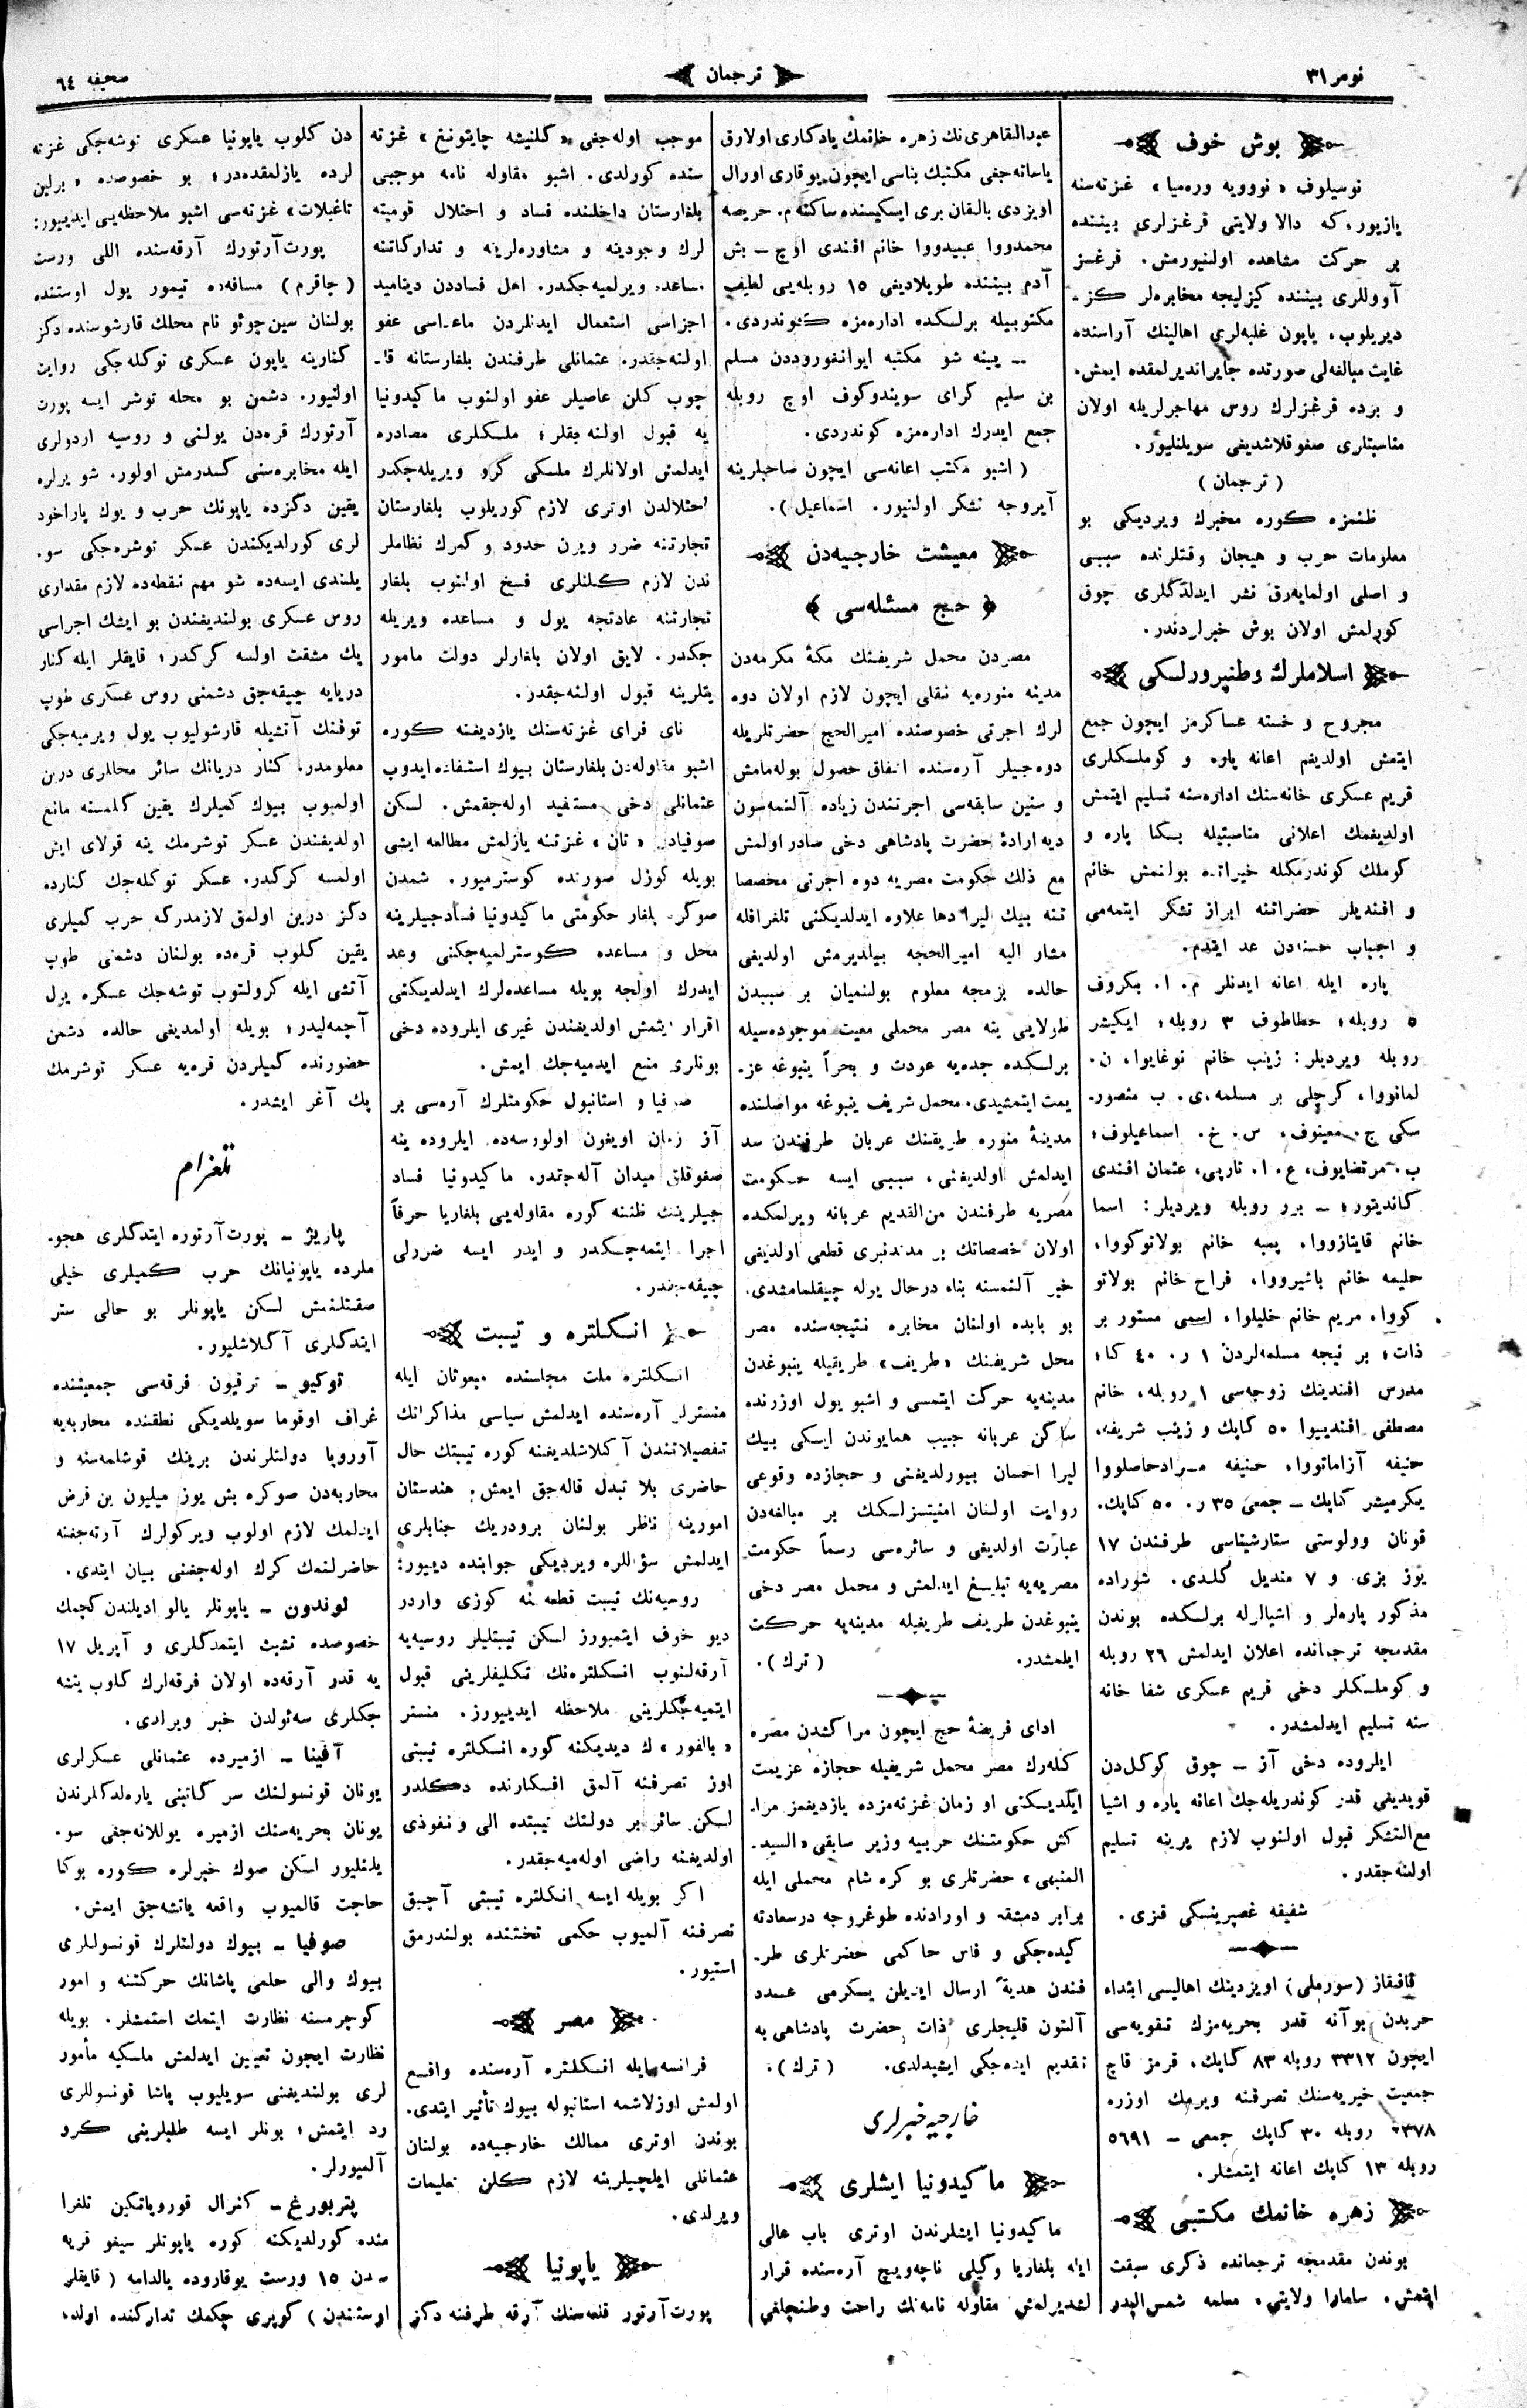 نومر ٣١
ترجمان
صحيفه ٦٤
بوش خوف
نوسيلوف «نوويه وره‌ميا» غزته‌سنه
يازيور، كه دالا ولايتى قرغزلرى بيننده
بر حركت مشاهده اولنيورمش. قرغـز
آووللرى بيننده كيزليجه مخابره‌لر كز‌ـ
ديريلوب، ياپون غلبه‌لرى اهالينك آراسنده
غايت مبالغه‌لى صورتده جايرانديرلمقده ايمش.
و بزده قرغزلرك روس مهاجرلريله اولان
مناسبتلرى صغوقلاشديغى سويلنليور.
(ترجمان)
ظنمزه كوره مخبرك ويرديكى بو
معلومات حرب و هيجان وقتلرنده سببى
و اصلى اولمايه‌رق نشر ايدلدكلرى چوق
كورلمش اولان بوش خبرلردندر.
اسلاملرك وطنپرورلكى
مجروح و خسته عساكرمز ايچون جمع
ايتمش اولديغم اعانه پاره و كوملكلرى
قريم عسكرى خانه‌سنك اداره‌سنه تسليم ايتمش
اولديغمك اعلانى مناسبتيله بكا پاره و
كوملك كوندرمكله خيراته بولنمش خانم
و افنديلر حضراتنه ابراز تشكر ايتمه‌مى
و اجباب حسنه‌دن عد ايتدم.
پاره ايله اعانه ايدنلر م. ا. بكروف
٥ روبله؛ حطاطوف ٣ روبله؛ ايكيشر
روبله ويرديلر: زينب خانم نوغايوا، ن.
لمانووا، كرچلى بر مسلمه، ى. ب منصور‌ـ
سكى ج. معينوف، س. خ. اسماعيلوف؛
ب. مرتضايوف، ع. ا. تارپى، عثمان افندى
كانديتور؛ ـ برر روبله ويرديلر: اسما
خانم قايتازووا، پمبه خانم بولاتوكووا،
حليمه خانم باشيرووا، فراح خانم بولاتو
كووا، مريم خانم خليلوا، اسمى مستور بر
ذات؛ بر نيجه مسلمه‌لردن ١ ر. ٤٠ كا؛
مدرس افندينك زوجه‌سى ١ روبله، خانم
مصطفى افندييوا ٥٠ كاپك و زينب شريفه،
حنيفه آزاماتووا، حنيفه مرادحاصلووا
يكرميشر كاپك ـ جمعى ٣٥ ر. ٥٠ كاپك.
قونان وولوستى ستارشيناسى طرفندن ١٧
يوز بزى و ٧ منديل كلدى. شوراده
مذكور پاره‌لر و اشيالرله برلكده بوندن
مقدمجه ترجمانده اعلان ايدلمش ٢٦ روبله
و كوملكلر دخى قريم عسكرى شفا خانه
سنه تسليم ايدلمشدر.
ايلروده دخى آز ـ چوق كوكلدن
قوپديغى قدر كوندريله‌جك اعانه پاره و اشيا
مع‌التشكر قبول اولنوب لازم يرينه تسليم
اولنه‌جقدر.
شفيقه غصپرينسكى قزى.
قافقاز (سورملى) اويزدينك اهاليسى ابتداء
حربدن بو آنه قدر بحريه‌مزك تقويه‌سى
ايچون ٣٣١٢ روبله ٨٣ كاپك، قرمز قاچ
جمعيت خيريه‌سنك تصرفنه ويرمك اوزره
٢٣٧٨ روبله ٣٠ كاپك جمعى ـ ٥٦٩١
روبله ١٣ كاپك اعانه ايتمشلر.
زهره خانمك مكتبى
بوندن مقدمجه ترجمانده ذكرى سبقت
ايتمش. سامارا ولايتى، معلمه شمس‌البدر
عبدالقاهرى‌نك زهره خانمك يادكارى اولارق
ياساته‌جغى مكتبك بناسى ايچون يوقارى اورال
اويزدى بالقان برى ايسكيسنده ساكنه م. حريصه
محمدووا عبيدووا خانم افندى اوچ ـ بش
آدم بيننده طوپلاديغى ١٥ روبله‌يى لطيف
مكتوبيله برلكده اداره‌مزه كوندردى.
ـ يينه شو مكتبه ايوانغوروددن مسلم
بن سليم كراى سويندوكوف اوچ روبله
جمع ايدرك اداره‌مزه كوندردى.
(اشبو مكتب اعانه‌سى ايچون صاحبلرينه
آيروجه تشكر اولنيور. اسماعيل).
معيشت خارجيه‌دن
حج مسئله‌سى
مصردن محمل شريفنك مكۀ مكرمه‌دن
مدينه منوره‌يه نقلى ايچون لازم اولان دوه
لرك اجرتى خصوصنده اميرالحج حضرتلريله
دوه‌جيلر آره‌سنده اتفاق حصول بوله‌مامش
و سنين سابقه‌سى اجرتندن زياده آلنمه‌سون
ديه ارادۀ حضرت پادشاهى دخى صادر اولمش
مع ذلك حكومت مصريه دوه اجرتى مخصصا
تنه بيك ليرا دها علاوه ايدلديكنى تلغرافله
مشار اليه اميرالحجه بيلديرمش اولديغى
حالده بزمجه معلوم بولنميان بر سببدن
طولايى ينه مصر محملى معيت موجوده‌سيله
برلكده جده‌يه عودت و بحراً ينبوغه عز‌ـ
يمت ايتمشيدى. محمل شريف ينبوغه مواصلنده
مدينۀ منوره طريقنك عربان طرفندن سد
ايدلمش اولديغنى، سببى ايسه حكومت
مصريه طرفندن من‌القديم عربانه ويرلمكده
اولان خصصاتك بر مدتدنبرى قطعى اولديغى
خبر آلنمسنه بناء درحال يوله چيقلمامشدى.
بو بابده اولنان مخابره نتيجه‌سنده مصر
محل شريفنك «طريف» طريقيله ينبوغدن
مدينه‌يه حركت ايتمسى و اشبو يول اوزرنده
ساكن عربانه جيب همايوندن ايكى بيك
ليرا احسان بيورلديغنى و حجازده وقوعى
روايت اولنان امنيتسزلكك بر مبالغه‌دن
عبارت اولديغى و سائره‌سى رسماً حكومت
مصريه‌يه تبليغ ايدلمش و محمل مصر دخى
ينبوغدن طريف طريقيله مدينه‌يه حركت
ايلمشدر. (ترك).
اداى فريضۀ حج ايچون مراكشدن مصره
كله‌رك مصر محمل شريفيله حجازه عزيمت
ايلديكنى او زمان غزته‌مزده يازديغمز مرا‌ـ
كش حكومتنك حربيه وزير سابقى «السيد‌ـ
المنبهى» حضرتلرى بو كره شام محملى ايله
برابر دمشقه و اورادنده طوغروجه درسعادته
كيده‌جكى و فاس حاكمى حضرتلرى طر‌ـ
فندن هديةً ارسال ايديلن يكرمى عدد
آلتون قليجلرى ذات حضرت پادشاهى يه
تقديم ايده‌جكى ايشيدلدى. (ترك).
خارجيه خبرلرى
ماكيدونيا ايشلرى
ماكيدونيا ايشلرندن اوترى باب عالى
ايله بلغاريا وكيلى ناچه‌ويچ آره‌سنده قرار
لشديرلمش مقاوله نامه‌نك راحت وطنچلغى
موجب اوله‌جغى «كلنيشه چايتونغ» غزته
سنده كورلدى. اشبو مقاوله نامه موجبى
بلغارستان داخلنده فساد و احتلال قوميته
لرك وجودينه و مشاوره‌لرينه و تداركاتنه
مساعده ويرلميه‌جكدر. اهل فساددن ديناميد
اجزاسى استعمال ايدنلردن ماعداسى عفو
اولنه‌جقدر. عثمانلى طرفندن بلغارستانه قا‌ـ
چوب كلن عاصيلر عفو اولنوب ماكيدونيا
يه قبول اولنه‌جقلر؛ ملكلرى مصادره
ايدلمش اولانلرك ملكى كرو ويريله‌جكدر
احتلالدن اوترى لازم كوريلوب بلغارستان
تجارتنه ضرر ويرن حدود و كمرك نظاملر
ندن لازم كلنلرى فسخ اولنوب بلغار
تجارتنه عادتجه يول و مساعده ويريله
جكدر. لايق اولان بلغارلر دولت مامور
يتلرينه قبول اولنه‌جقدر.
ناى فراى غزته‌سنك يازديغنه كوره
اشبو مقاوله‌دن بلغارستان بيوك استفاده ايدوب
عثمانلى دخى مستفيد اوله‌جقمش. لكن
صوفيادن «تان» غزتنه يازلمش مطالعه ايشى
بويله كوزل صورتده كوسترميور. شمدن
صوكره بلغار حكومتى ماكيدونيا فسادجيلرينه
محل و مساعده كوسترلميه‌جكنى وعد
ايدرك اولجه بويله مساعده‌لرك ايدلديكنى
اقرار ايتمش اولديغندن غيرى ايلروده دخى
بونلرى منع ايدميه‌جك ايمش.
صوفيا و استانبول حكومتلرك آره‌سى بر
آز زمان اويغون اولورسه‌ده ايلروده ينه
صغوقلق ميدان آله‌جقدر. ماكيدونيا فساد
جيلرينك ظننه كوره مقاوله‌يى بلغاريا حرفاً
اجرا ايتمه‌جكدر و ايدر ايسه ضررلى
چيقه‌جقدر.
انكلتره و تيبت
انكلتره ملت مجلسنده مبعوثان ايله
منسترلر آره‌سنده ايدلمش سياسى مذاكراتك
تفصيلاتندن آكلاشلديغنه كوره تيبتك حال
حاضرى بلا تبدل قاله‌جق ايمش. هندستان
امورينه ناظر بولنان برودريك جنابلرى
ايدلمش سؤاللره ويرديكى جوابنده ديييور:
روسيه‌نك تيبت قطعه‌سنه كوزى واردر
ديو خوف ايتميورز لكن تيبتليلر روسيه‌يه
آرقه‌لنوب انكلتره‌نك تكليفلرينى قبول
ايتميه‌جكلرينى ملاحظه ايدييورز. منستر
«بالفور» ك ديديكنه كوره انكلتره تيبتى
اوز تصرفنه آلمق افكارنده دكلدر
لكن سائر بر دولتك تيبتده الى و نفوذى
اولديغنه راضى اوله‌ميه‌جقدر.
اكر بويله ايسه انكلتره تيبتى آچيق
تصرفنه آلميوب حكمى تختنده بولندرمق
استيور.
مصر
فرانسه ايله انكلتره آره‌سنده واقع
اولمش اوزلاشمه استانبوله بيوك تأثير ايتدى.
بوندن اوترى ممالك خارجيه‌ده بولنان
عثمانلى ايلچيلرينه لازم كلن تعليمات
ويرلدى.
ياپونيا
پورت آرتور قلعه‌سنك آرقه طرفنه دكز
دن كلوب ياپونيا عسكرى توشه‌جكى غزته
لرده يازلمقده‌در؛ بو خصوصده «برلين
تاغبلات» غزته‌سى اشبو ملاحظه‌يى ايدييور:
پورت آرتورك آرقه‌سنده اللى ورست
(چاقرم) مسافه‌ده تيمور يول اوستنده
بولنان سين‌چوئو نام محلك قارشوسنده دكز
كنارينه ياپون عسكرى توكله‌جكى روايت
اولنيور. دشمن بو محله توشر ايسه پورت
آرتورك قره‌دن يولنى و روسيه اردولرى
ايله مخابره‌سنى كسدرمش اولور. شو يرلره
يقين دكزده ياپونك حرب و يوك پاراخود
لرى كورلديكندن عسكر توشره‌جكى سو‌ـ
يلندى ايسه‌ده شو مهم نقطه‌ده لازم مقدارى
روس عسكرى بولنديغندن بو ايشك اجراسى
پك مشقت اولسه كركدر؛ قايقلر ايله كنار
دريايه چيقه‌جق دشمنى روس عسكرى طوپ
توفنك آتشيله قارشوليوب يول ويرميه‌جكى
معلومدر. كنار دريانك سائر محللرى درين
اولميوب بيوك كميلرك يقين كلمسنه مانع
اولديغندن عسكر توشرمك ينه قولاى ايش
اولمسه كركدر. عسكر توكله‌جك كنارده
دكز درين اولمق لازمدركه حرب كميلرى
يقين كلوب قره‌ده بولنان دشمنى طوپ
آتشى ايله كرولتوب توشه‌جك عسكره يول
آچمه‌ليدر؛ بويله اولمديغى حالده دشمن
حضورنده كميلردن قره‌يه عسكر توشرمك
پك آغر ايشدر.
تلغرام
پاريژ ـ پورت آرتوره ايتدكلرى هجو‌ـ
ملرده ياپونيانك حرب كميلرى خيلى
صقتلنمش لكن ياپونلر بو حالى ستر
ايتدكلرى آكلاشليور.
توكيو ـ ترقيون فرقه‌سى جمعيتنده
غراف اوقوما سويلديكى نطقنده محاربه‌يه
آوروپا دولتلرندن برينك قوشلمه‌سنه و
محاربه‌دن صوكره بش يوز ميليون ين قرض
ايدلمك لازم اولوب ويركولرك آرته‌جغنه
حاضرلنمك كرك اوله‌جغنى بيان ايتدى.
لوندون ـ ياپونلر يالو اديلندن كچمك
خصوصده تشبث ايتمدكلرى و آپريل ١٧
يه قدر آرقه‌ده اولان فرقه‌لرك كلوب يتشه
جكلرى سه‌ئولدن خبر ويرلدى.
آفينا ـ ازميرده عثمانلى عسكرلرى
يونان قونسولنك سر كاتبنى ياره‌لدكلرندن
يونان بحريه‌سنك ازميره يوللانه‌جغى سو‌ـ
يلنليور لكن صوك خبرلره كوره بوكا
حاجت قالميوب واقعه ياتشه‌جق ايمش.
صوفيا ـ بيوك دولتلرك قونسوللرى
بيوك والى حلمى پاشانك حركتنه و امور
كوچرمسنه نظارت ايتمك استمشلر. بويله
نظارت ايچون تعيين ايدلمش ملكيه مأمور
لرى بولنديغنى سويليوب پاشا قونسوللرى
رد ايتمش؛ بونلر ايسه طلبلرينى كرو
آلميورلر.
پتربورغ ـ كنرال قوروپاتكين تلغرا
منده كورلديكنه كوره ياپونلر سيغو قريه
ـدن ١٥ ورست يوقاروده يالدامه (قايقلر
اوستندن) كوپرى چكمك تداركنده اولد‌ـ